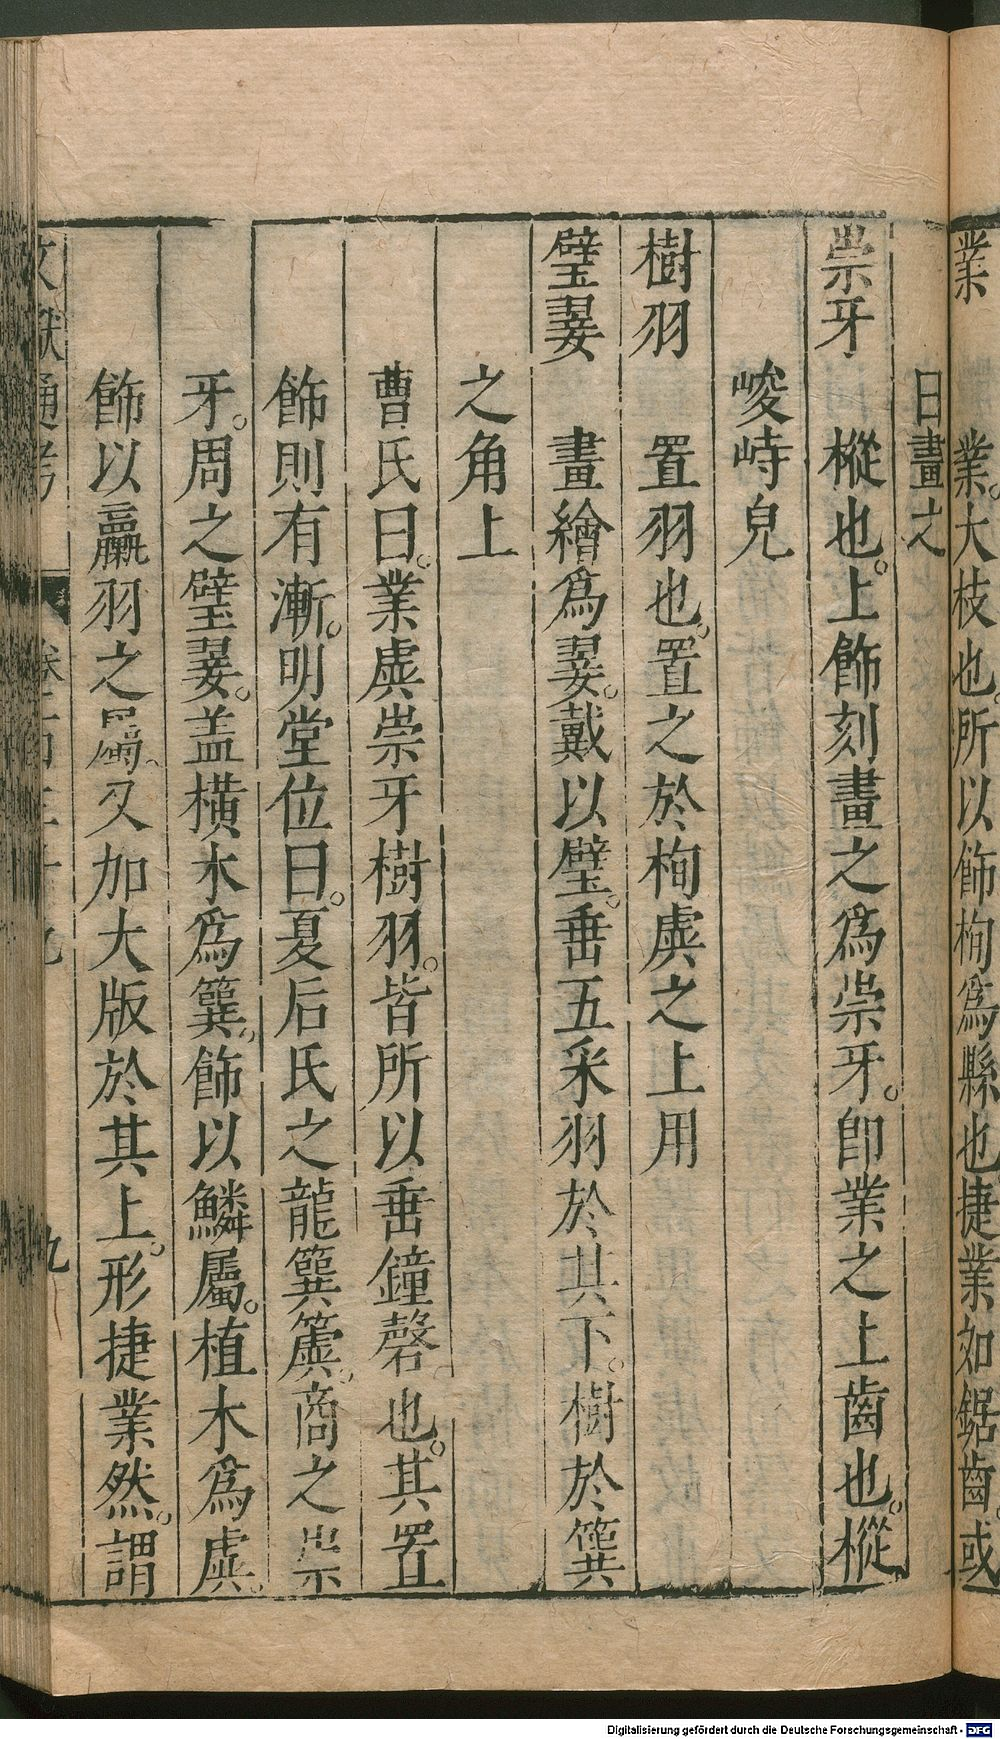 業　　業。大枝也。所以飾栒為縣也捷業如鋸齒。或
日畫之
崇牙　樅也。上飾刻畫之為崇牙。即業之上齒也。樅
峻峙皃
樹羽　置羽也。置之於栒虡之上用
璧翣　畫繒為翣。戴以璧。垂五采羽於其下。樹於簨
之角上
曹氏曰。業虡崇牙樹羽。皆所以垂鐘磬。也。其置
飾則有漸。明堂位曰。夏后氏之龍簨簴。商之崇
牙。周之璧翣。盖橫木為簨。飾以鱗屬。植木為虡。
飾以臝羽之屬。又加大版於其上。形捷業然。謂
文獻通考　卷一百三十九　九
Digitalisierung gefördert durch die Deutsche Forschungsgemeinschaft - DFG